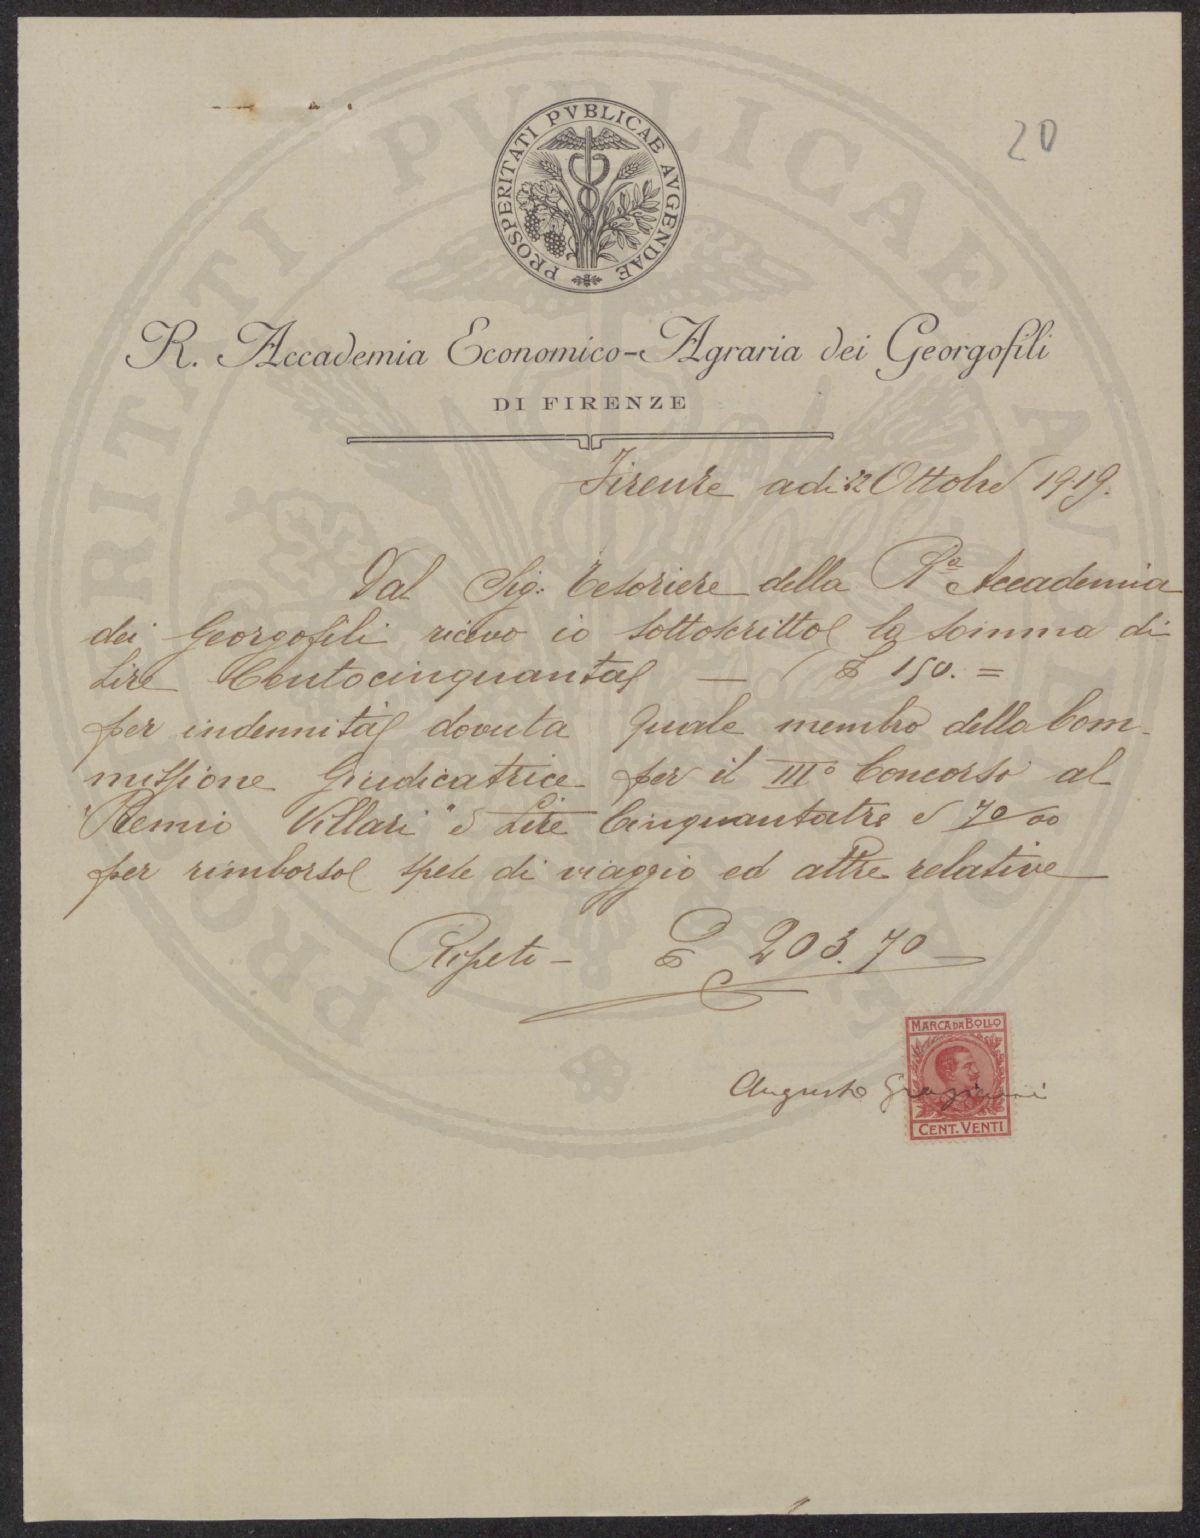 PROSPERITATI PVBLICAE AVGENDAE
20
R. Accademia Economico-Agraria dei Georgofili
DI FIRENZE
Firenze adi 22 Ottobre 1919.
Dal Sig: Tesoriere della Rª Accademia
dei Georgofili ricevo io sottoscritto la somma di
Lire Centocinquanta — (£ 150. =
per indennità dovuta quale membro della Com-
missione Giudicatrice per il III° Concorso al
"Premio Villari" e Lire Cinquantatre e 70/00
per rimborso spese di viaggio ed altre relative
Ripeto - £ 203.70
MARCA DA BOLLO
Augusto Graziani
CENT. VENTI